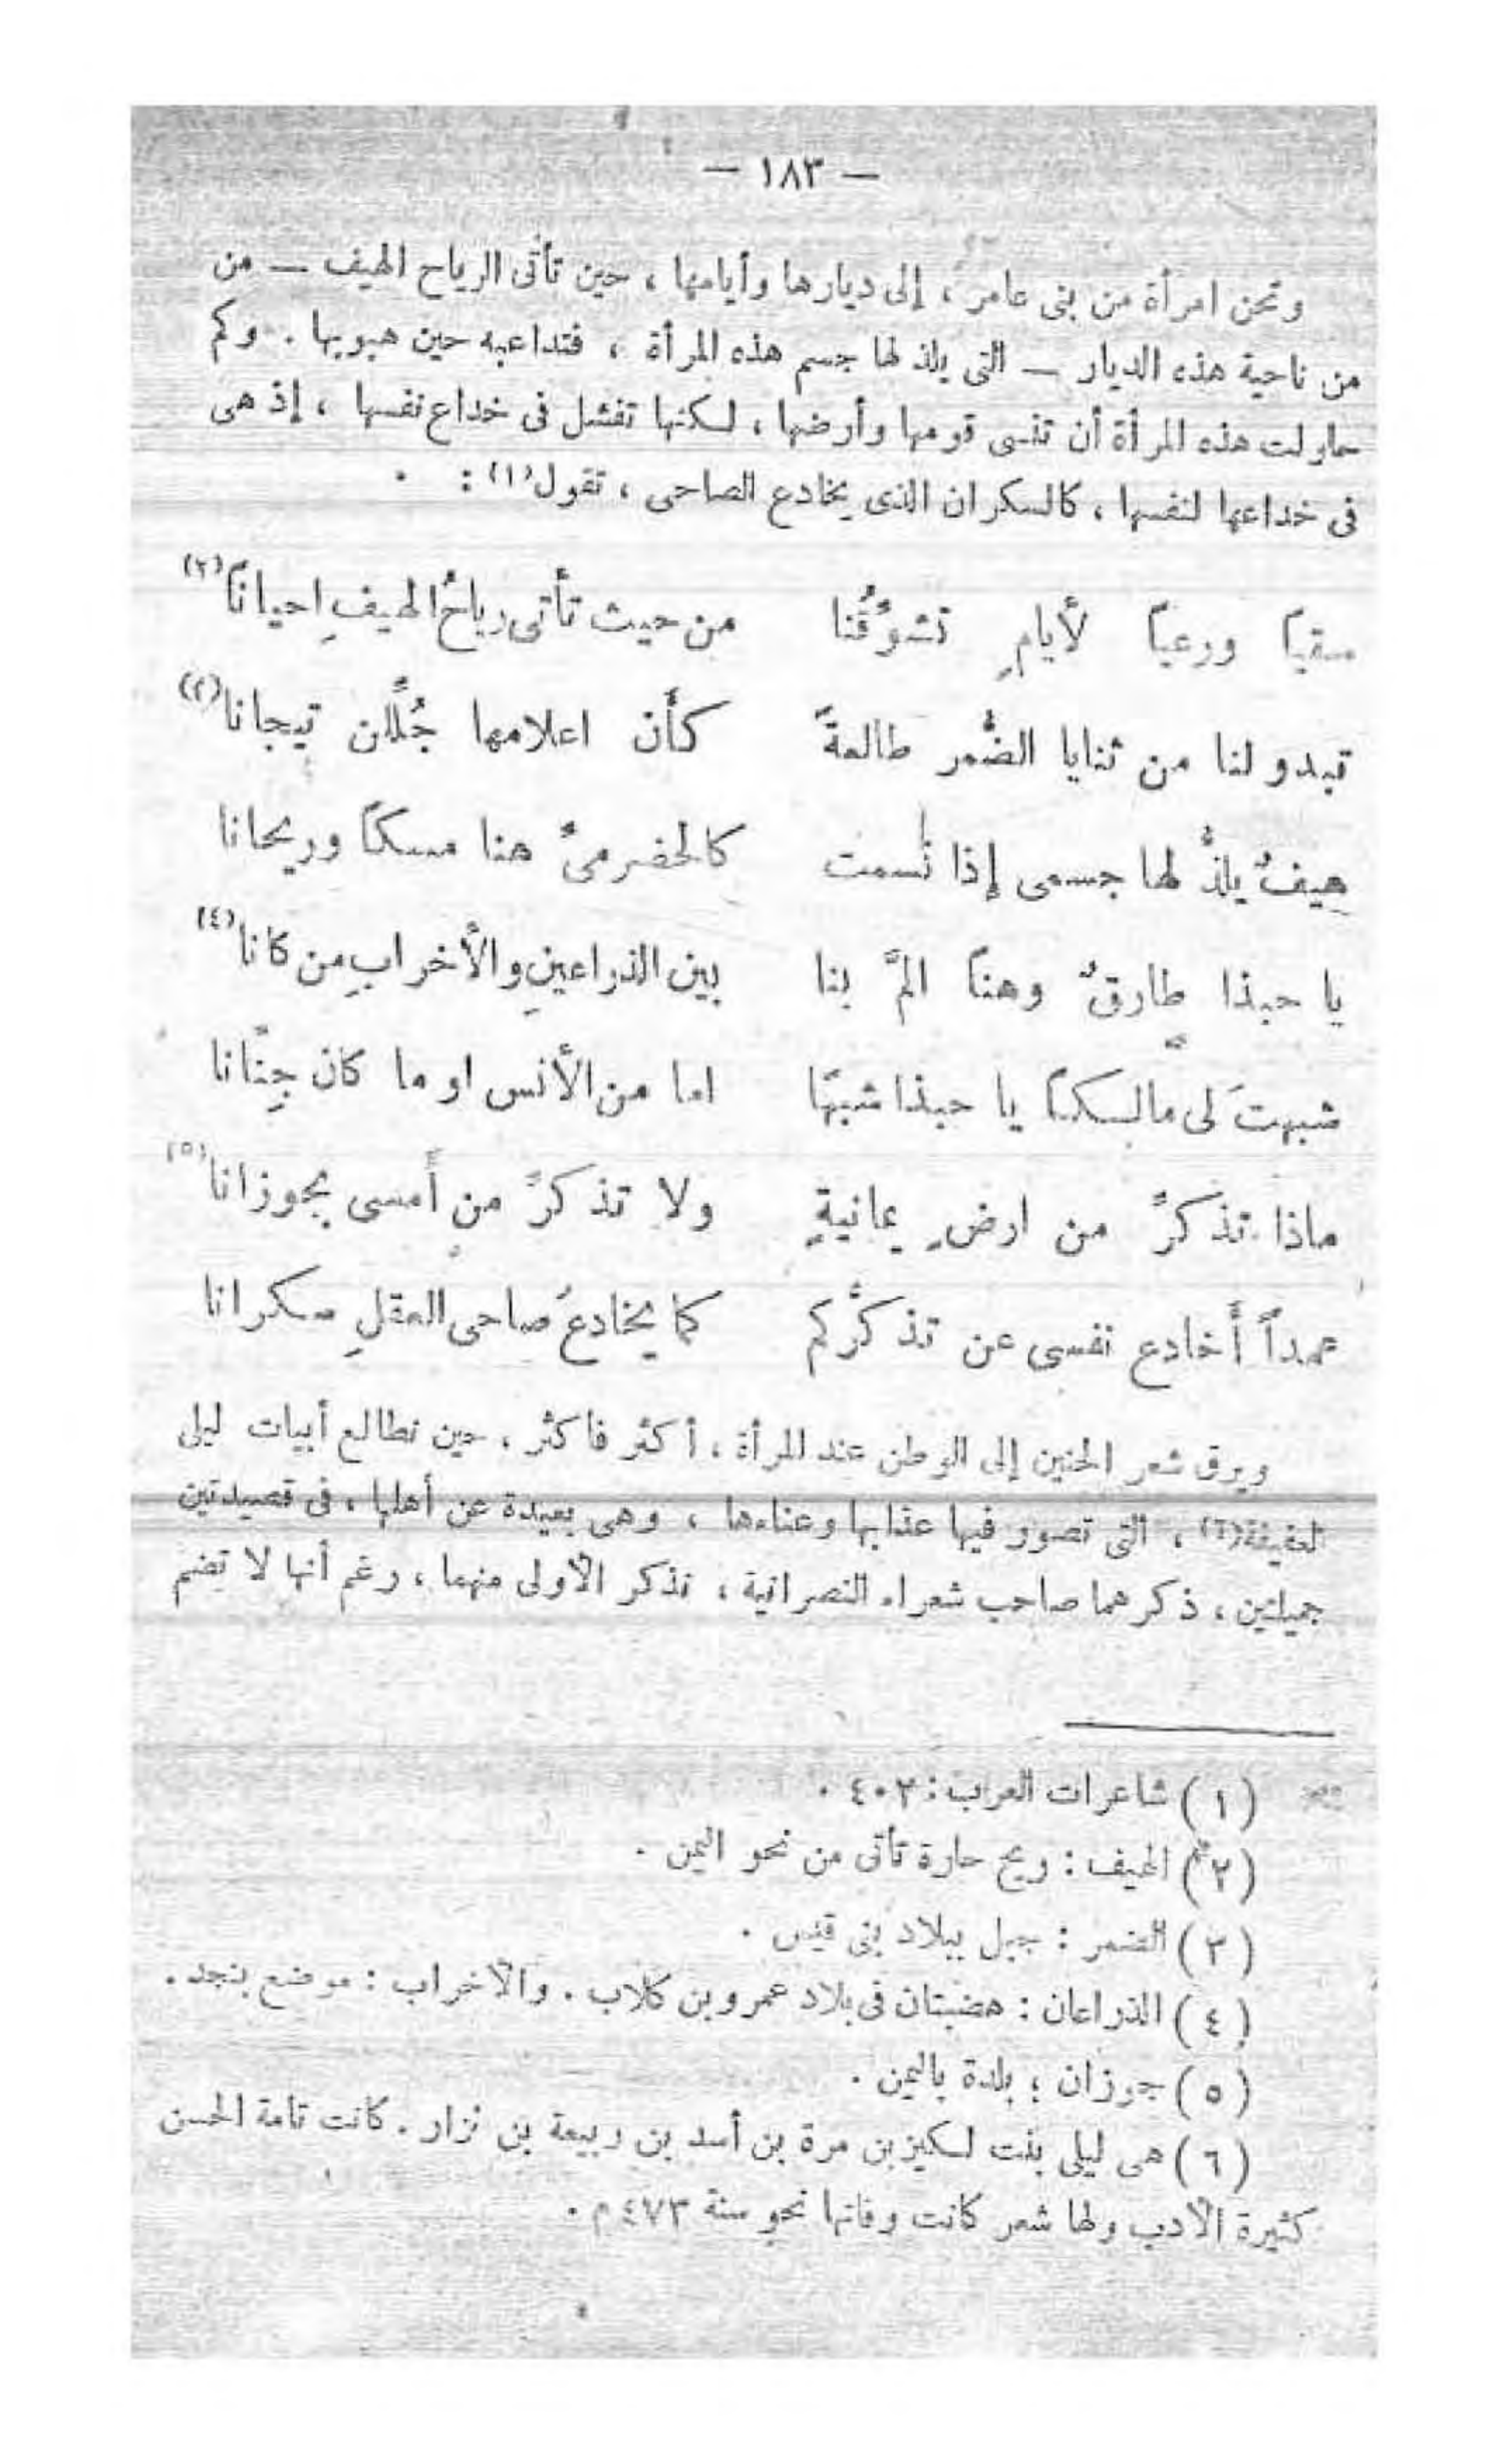 — ١٨٣ —
وتحن امرأة من بنى عامر ، إلى ديارها وأيامها ، حين تأتى الرياح الهيف — من
من ناحية هذه الديار — التى يلذ لها جسم هذه المرأة ، فتداعبه حين هبوبها . وكم
حاولت هذه المرأة أن تنسى قومها وأرضها ، لكنها تفشل فى خداع نفسها ، إذ هى
فى خداعها لنفسها ، كالسكران الذى يخادع الصاحى ، تقول(١) :
سقياً ورعياً لأيامٍ تشوّقُنا من حيث تأتى رياحُ الهيفِ احياناً(٢)
تبدو لنا من ثنايا الضُّمر طالعةً كأن اعلامها جُلَّلن تيجانا(٢)
هيفٌ يلذُّ لها جسمى إذا نَسمت كالحضرمىٌ هنا مسكاً وريحانا
يا حبذا طارقٌ وهناً المَّ بنا بين الذراعينِ والأخرابِ من كانا(٤)
شبهتَ لى مالسكاً يا حبذا شبهًا اما من الأنس او ما كان جِنّانا
ماذا تذكرّ من ارضٍ يمانيةٍ ولا تذكرّ من أمسى بجوزانا(٥)
عمداً أَخادع نفسى عن تذكرُّكم كما يخادعُ صاحى العقلِ سكرانا
ويرق شعر الحنين إلى الوطن عند المرأة ، أكثر فأكثر ، حين نطالع أبيات ليلى
العفيفة(٦) ، التى تصور فيها عذابها وعناءها ، وهى بعيدة عن أهلها ، فى قصيدتين
جميلتين ، ذكرهما صاحب شعراء النصرانية ، نذكر الأولى منهما ، رغم أنها لا تضم
(١) شاعرات العرب : ٤٠٢ .
(٢) الهيف : ريح حارة تأتى من نحو اليمن .
(٣) الضمر : جبل ببلاد بنى قيس .
(٤) الذراعان : هضبتان فى بلاد عمرو بن كلاب . والأخراب : موضع بنجد .
(٥) جوزان ؛ بلدة باليمن .
(٦) هى ليلى بنت لكيز بن مرة بن أسد بن ربيعة بن نزار . كانت تامة الحسن
كثيرة الأدب ولها شعر كانت وفاتها نحو سنة ٤٧٣ م .